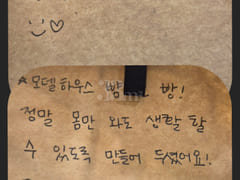 ☆모델하우스 뺨 빵!
정말 몸만 와도 생활 할
수 있도록 만들어 두셨어요!